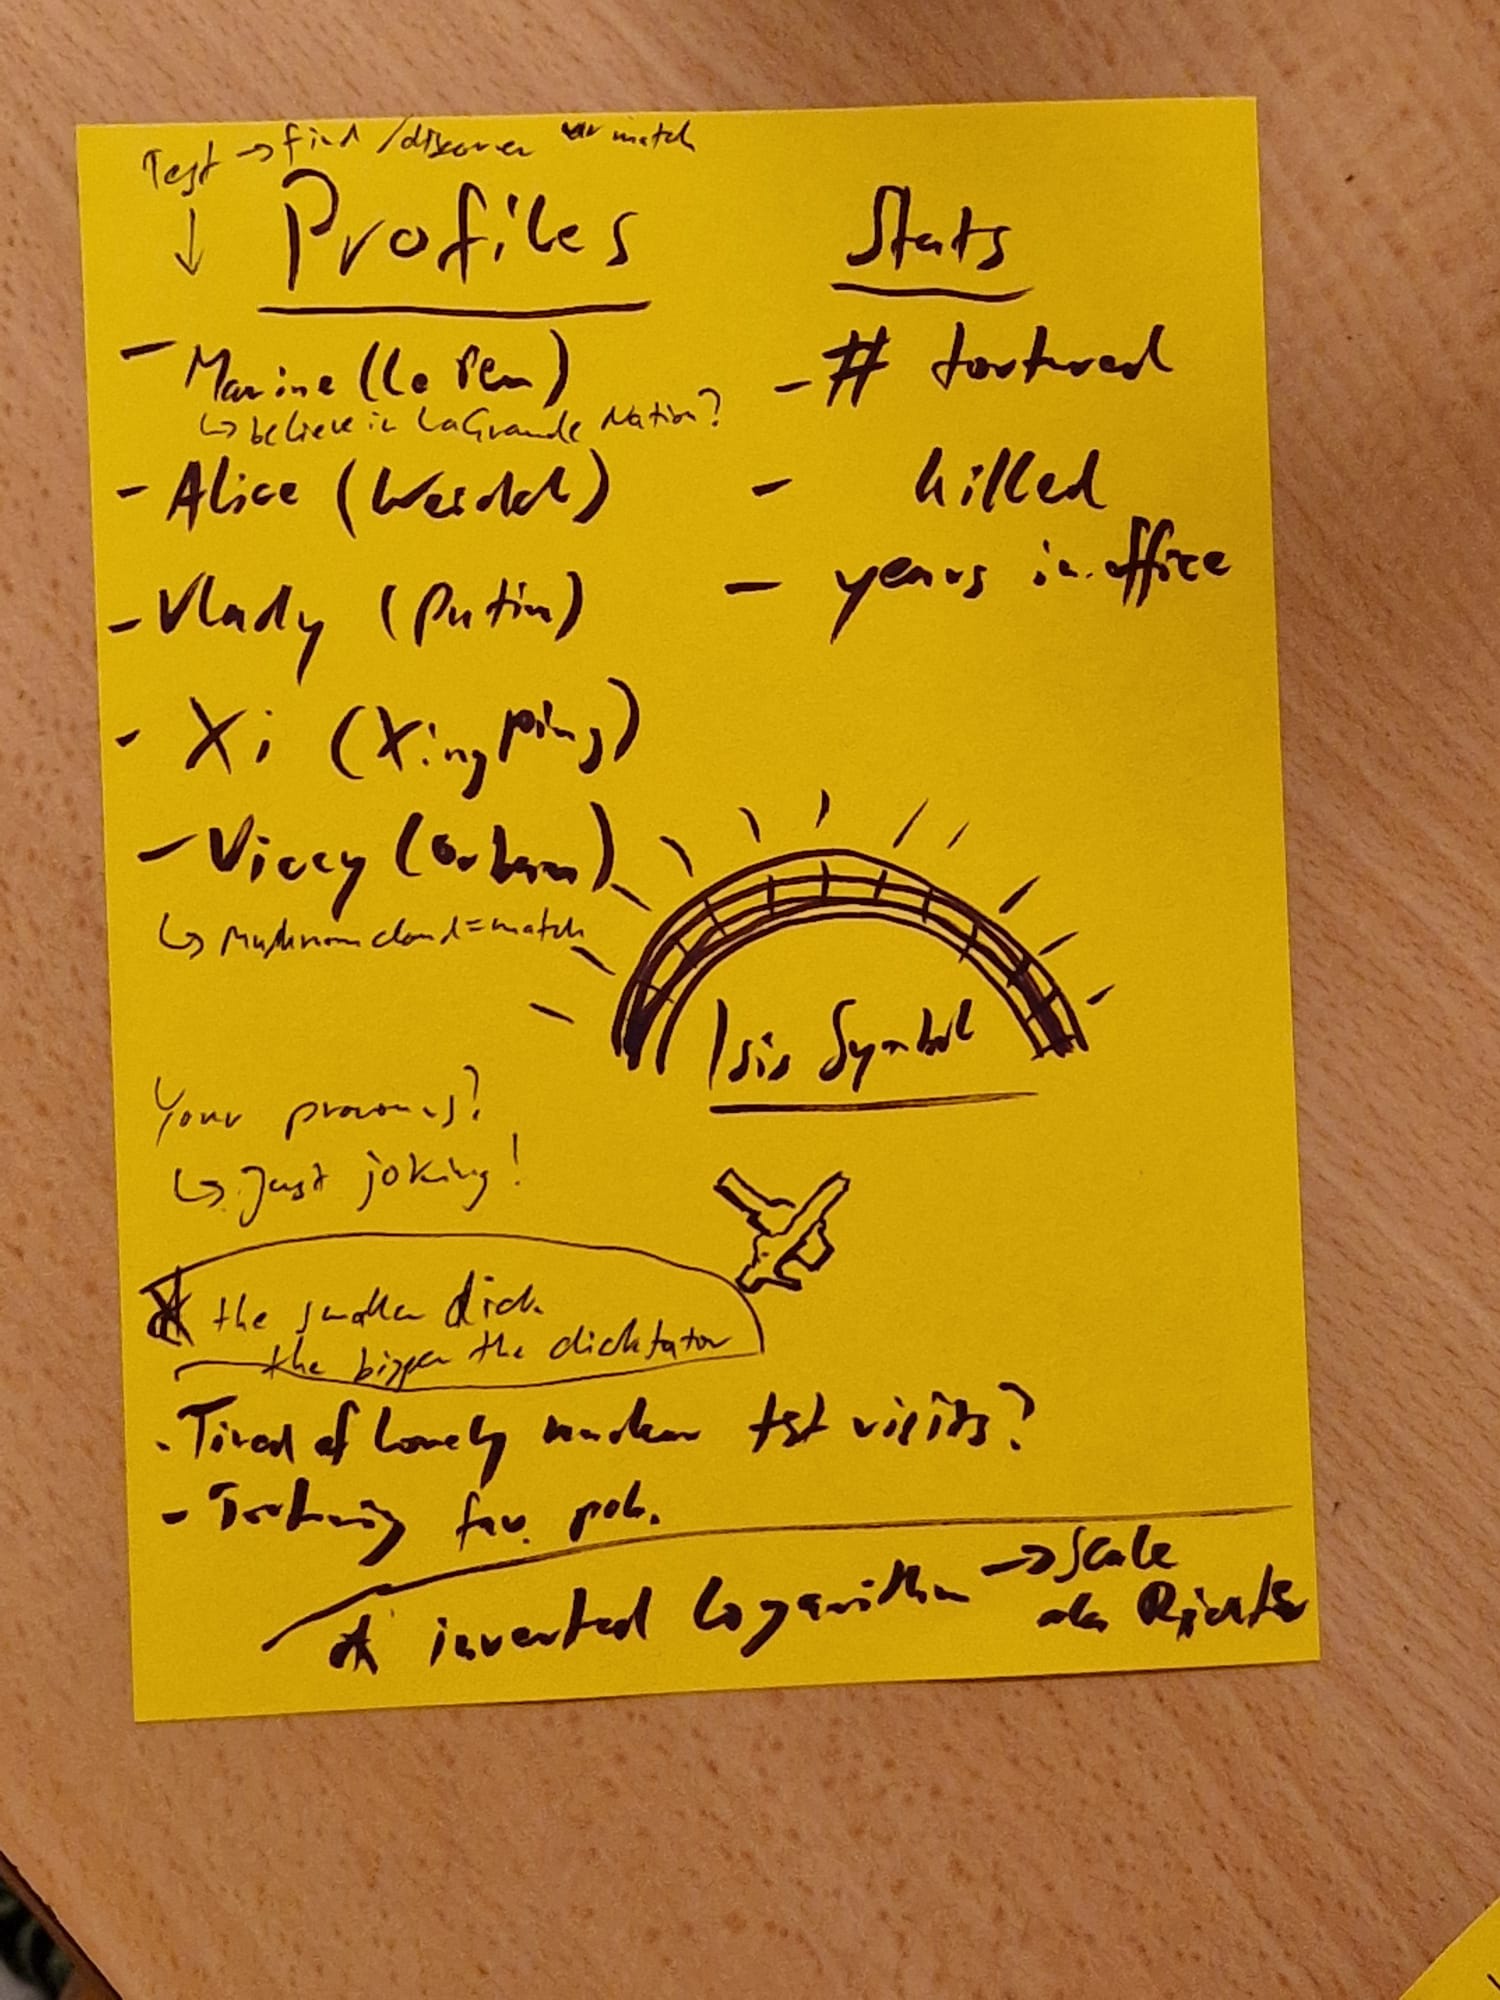 Test → find / discover ur match
↓
Profiles
- Marine (Le Pen)
↳ believe in La Grande Nation?
- Alice (Weidel)
- Vlady (Putin)
- Xi (Xingping)
- Viccy (Orban)
↳ Mushroomcloud = match
Stats
- # tortured
- killed
- years in office
Isis Symbol
Your pronouns?
↳ Just joking!
the smaller dick
the bigger the dicktator
- Tired of lonely nuclear test visits?
- Torturing fav. pol.
inverted logarithm → scale
aka Richter